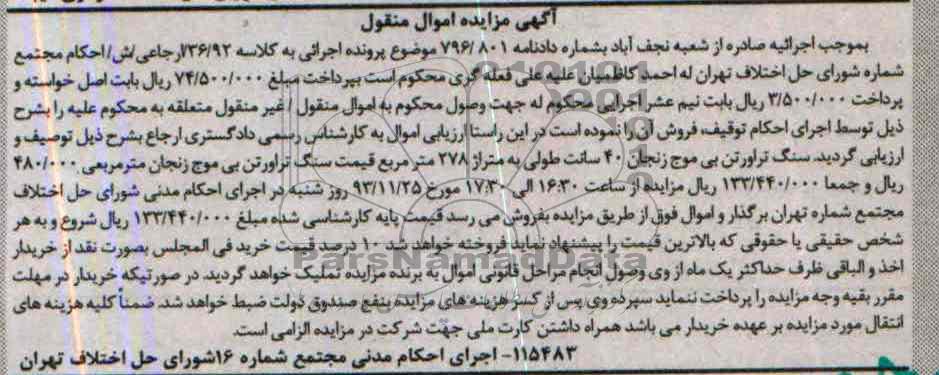 آگهی مزایده اموال منقول
بموجب اجرائیه صادره از شعبه نجف آباد بشماره دادنامه ۸۰۱ /۷۹۶ موضوع پرونده اجرائی به کلاسه ۳۶/۹۲/ارجاعی/ش/احکام مجتمع
شماره شورای حل اختلاف تهران له احمد کاظمیان علیه علی فعله گری محکوم است بپرداخت مبلغ ۷۴/۵۰۰/۰۰۰ ریال بابت اصل خواسته و
پرداخت ۳/۵۰۰/۰۰۰ ریال بابت نیم عشر اجرایی محکوم له جهت وصول محکوم به اموال منقول / غیر منقول متعلقه به محکوم علیه را بشرح
ذیل توسط اجرای احکام توقیف، فروش آن را نموده است در این راستا ارزیابی اموال به کارشناس رسمی دادگستری ارجاع بشرح ذیل توصیف و
ارزیابی گردید. سنگ تراورتن بی موج زنجان ۴۰ سانت طولی به متراژ ۲۷۸ متر مربع قیمت سنگ تراورتن بی موج زنجان مترمربعی ۴۸۰/۰۰۰
ریال و جمعا ۱۳۳/۴۴۰/۰۰۰ ریال مزایده از ساعت ۱۶:۳۰ الی ۱۷:۳۰ مورخ ۹۳/۱۱/۲۵ روز شنبه در اجرای احکام مدنی شورای حل اختلاف
مجتمع شماره تهران برگذار و اموال فوق از طریق مزایده بفروش می رسد قیمت پایه کارشناسی شده مبلغ ۱۳۳/۴۴۰/۰۰۰ ریال شروع و به هر
شخص حقیقی یا حقوقی که بالاترین قیمت را پیشنهاد نماید فروخته خواهد شد ۱۰ درصد قیمت خرید فی المجلس بصورت نقد از خریدار
اخذ و الباقی ظرف حداکثر یک ماه از وی وصول انجام مراحل قانونی اموال به برنده مزایده تملیک خواهد گردید. در صورتیکه خریدار در مهلت
مقرر بقیه وجه مزایده را پرداخت ننماید سپرده وی پس از کسر هزینه های مزایده بنفع صندوق دولت ضبط خواهد شد. ضمناً کلیه هزینه های
انتقال مورد مزایده بر عهده خریدار می باشد همراه داشتن کارت ملی جهت شرکت در مزایده الزامی است.
۱۱۵۴۸۳- اجرای احکام مدنی مجتمع شماره ۱۶شورای حل اختلاف تهران
ParsNamadData